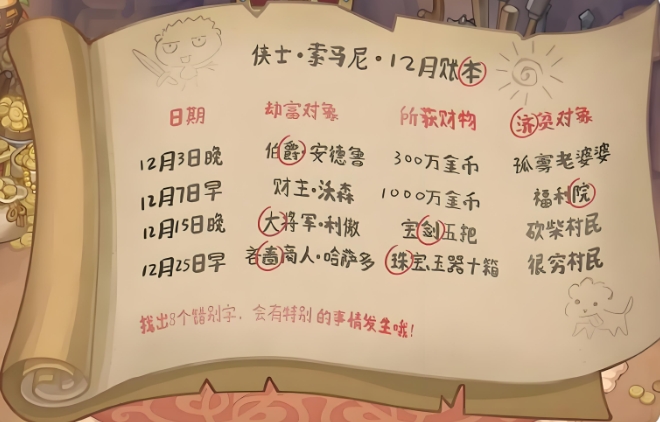 侠士·索马尼·12月账本
日期 劫富对象 所获财物 济贫对象
12月3日晚 伯爵·安德鲁 300万金币 孤寡老婆婆
12月7日早 财主·沃森 1000万金币 福利院
12月15日晚 大将军·利傲 宝剑五把 砍柴村民
12月25日早 吝啬商人·哈萨多 珠宝玉器十箱 很穷村民
找出8个错别字,会有特别的事情发生哦!